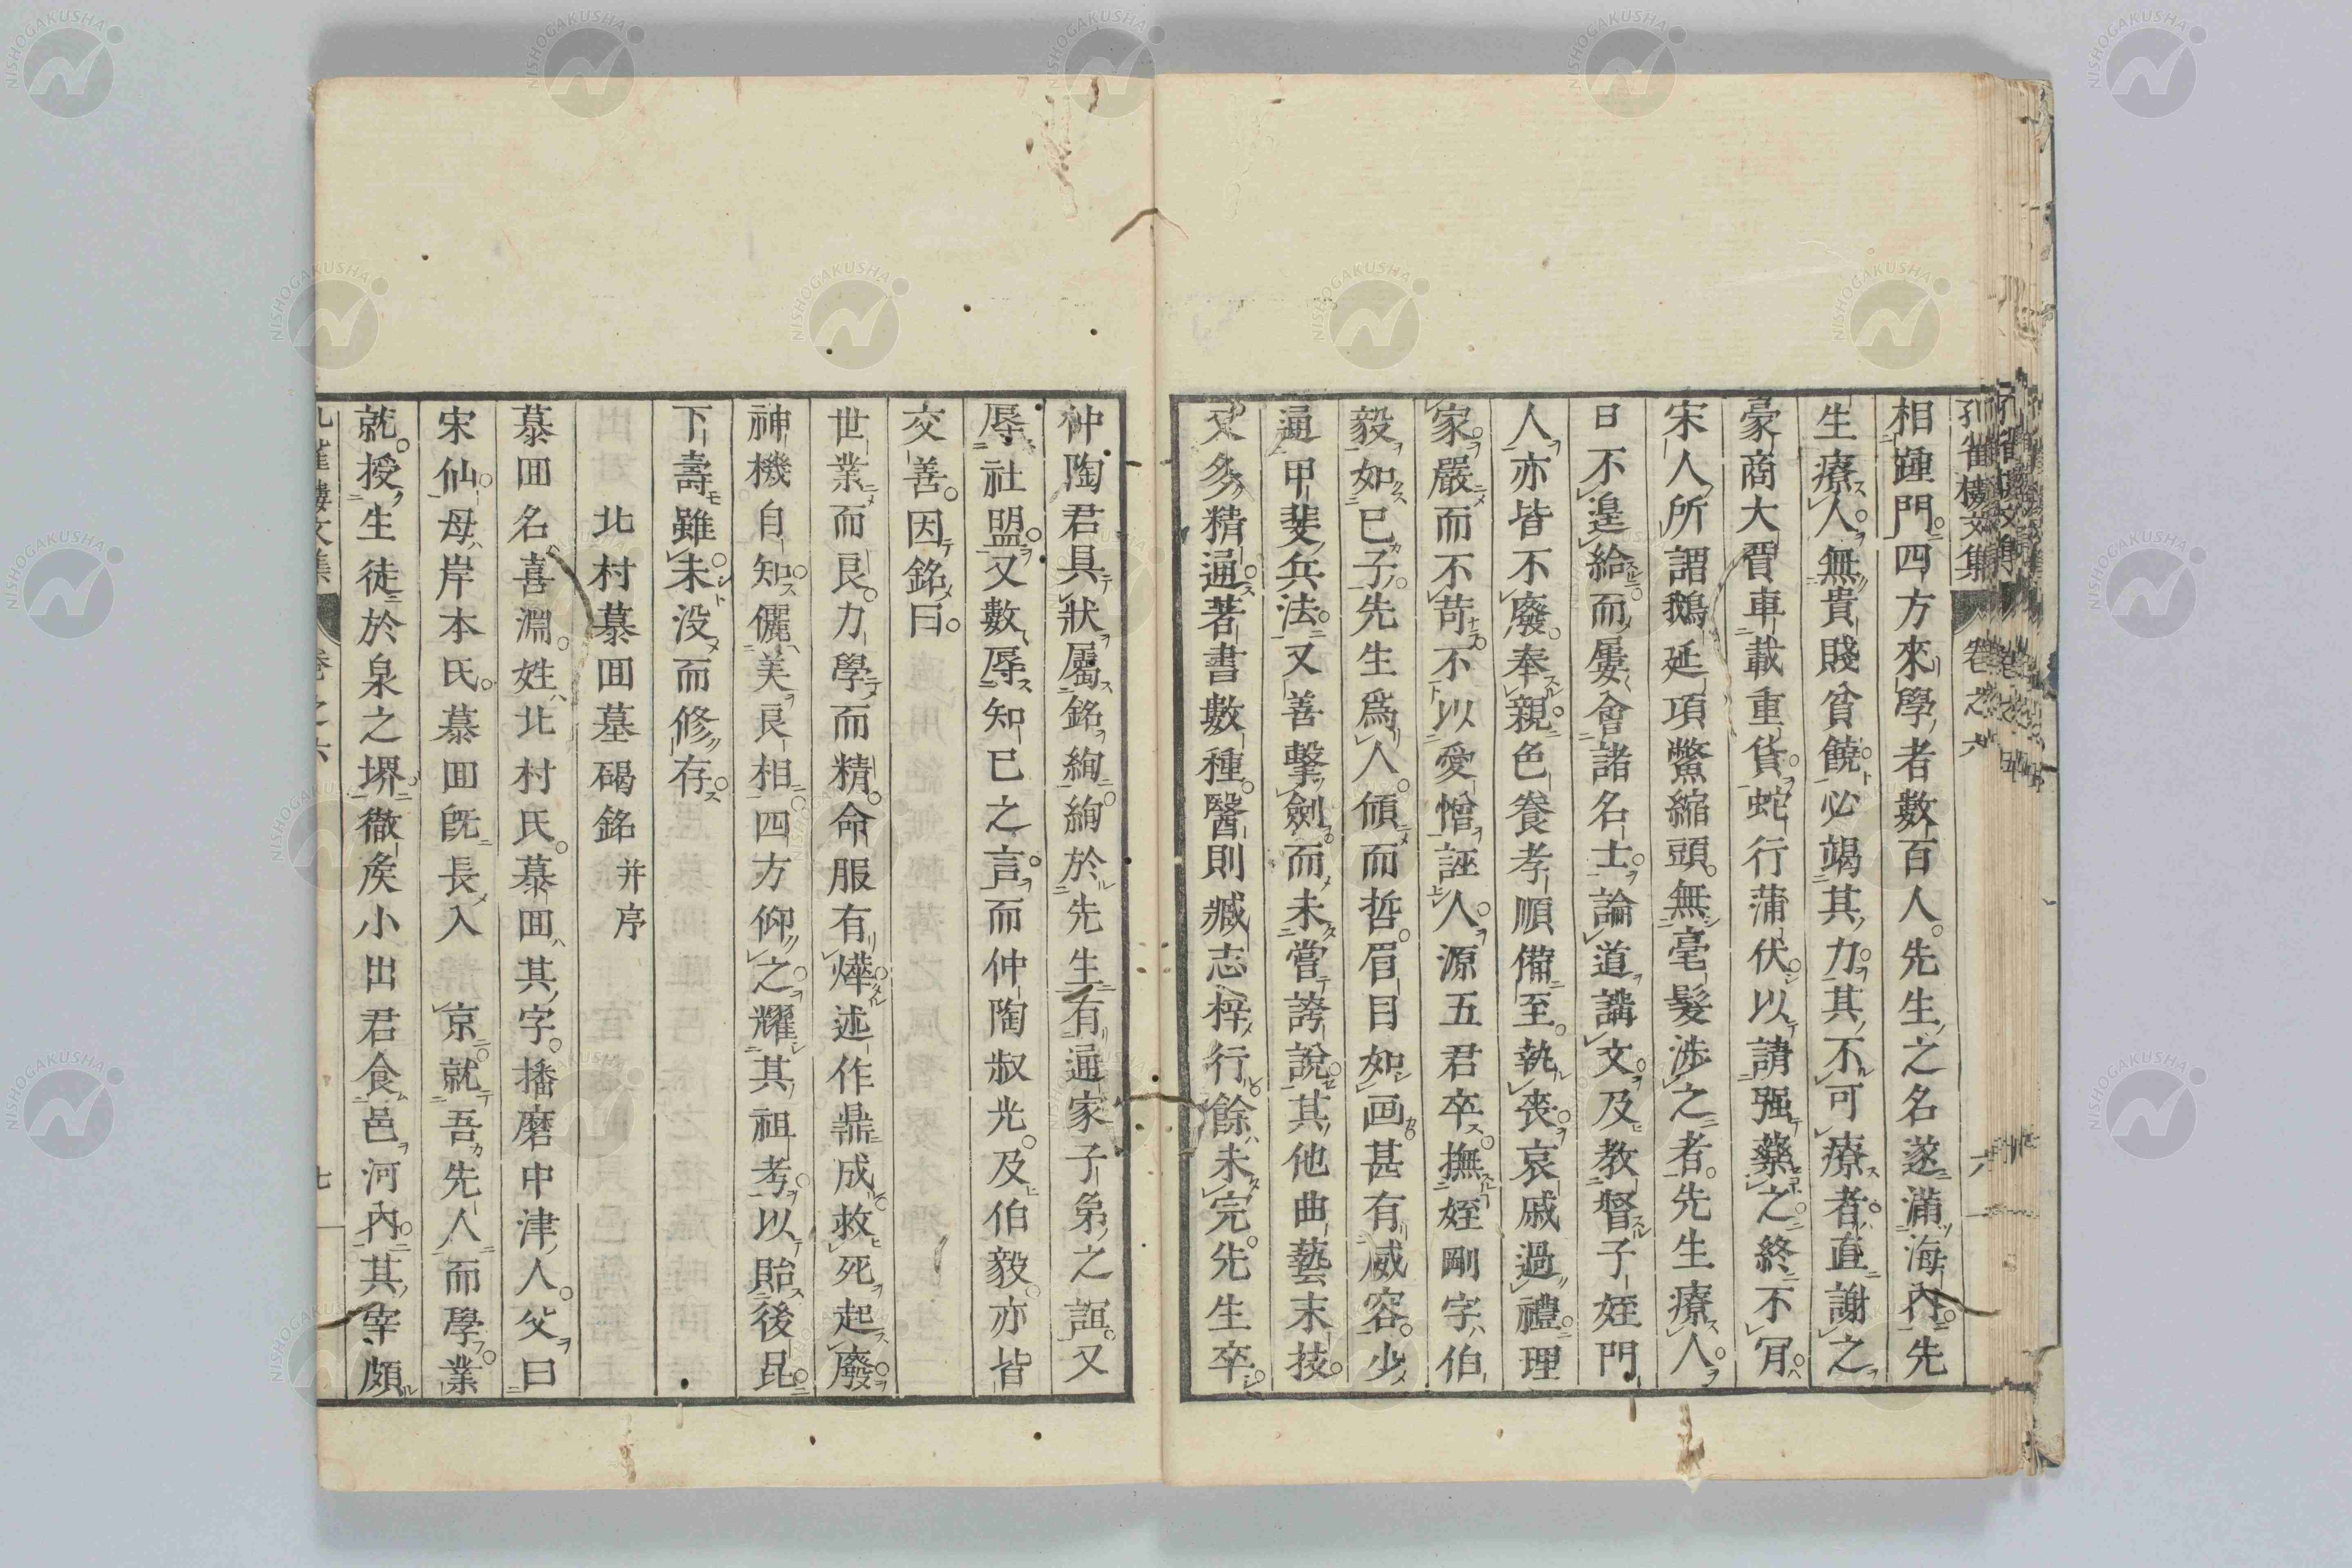 孔雀樓文集 卷之六 六
相踵門四方來學者數百人先生之名遂滿海內先
生療人無貴賤貧饒必竭其力其不可療者直謝之
豪商大賈車載重貨蛇行蒲伏以請强藥之終不肎
宋人所謂鵝延項鱉縮頭無毫髮涉之者先生療人
日不遑給而屢會諸名士論道講文及教督子姪門
人亦皆不廢奉親色養孝順備至執喪哀戚過禮理
家嚴而不苛不以愛憎誣人源五君卒撫姪剛字伯
毅如己子先生爲人傾而哲眉目如画甚有威容少
通甲斐兵法又善擊劍而未嘗誇說其他曲藝末技
又多精通著書數種醫則臧志梓行餘未完先生卒
仲陶君具狀屬銘絢絢於先生有通家子弟之誼又
辱社盟又數辱知己之言而仲陶叔光及伯毅亦皆
交善因銘曰
世業而良力學而精命服有燁述作鼎成救死起廢
神機自知儷美良相四方仰之耀其祖考以貽後昆
下壽雖未没而修存
北村慕囬墓碣銘 并序
慕囬名喜淵姓北村氏慕囬其字播磨中津人父曰
宋仙母岸本氏慕囬既長入京就吾先人而學業
就授生徒於泉之堺徹矦小出君食邑河內其宰頗
孔雀樓文集 卷之六 七
NISHOGAKUSHA